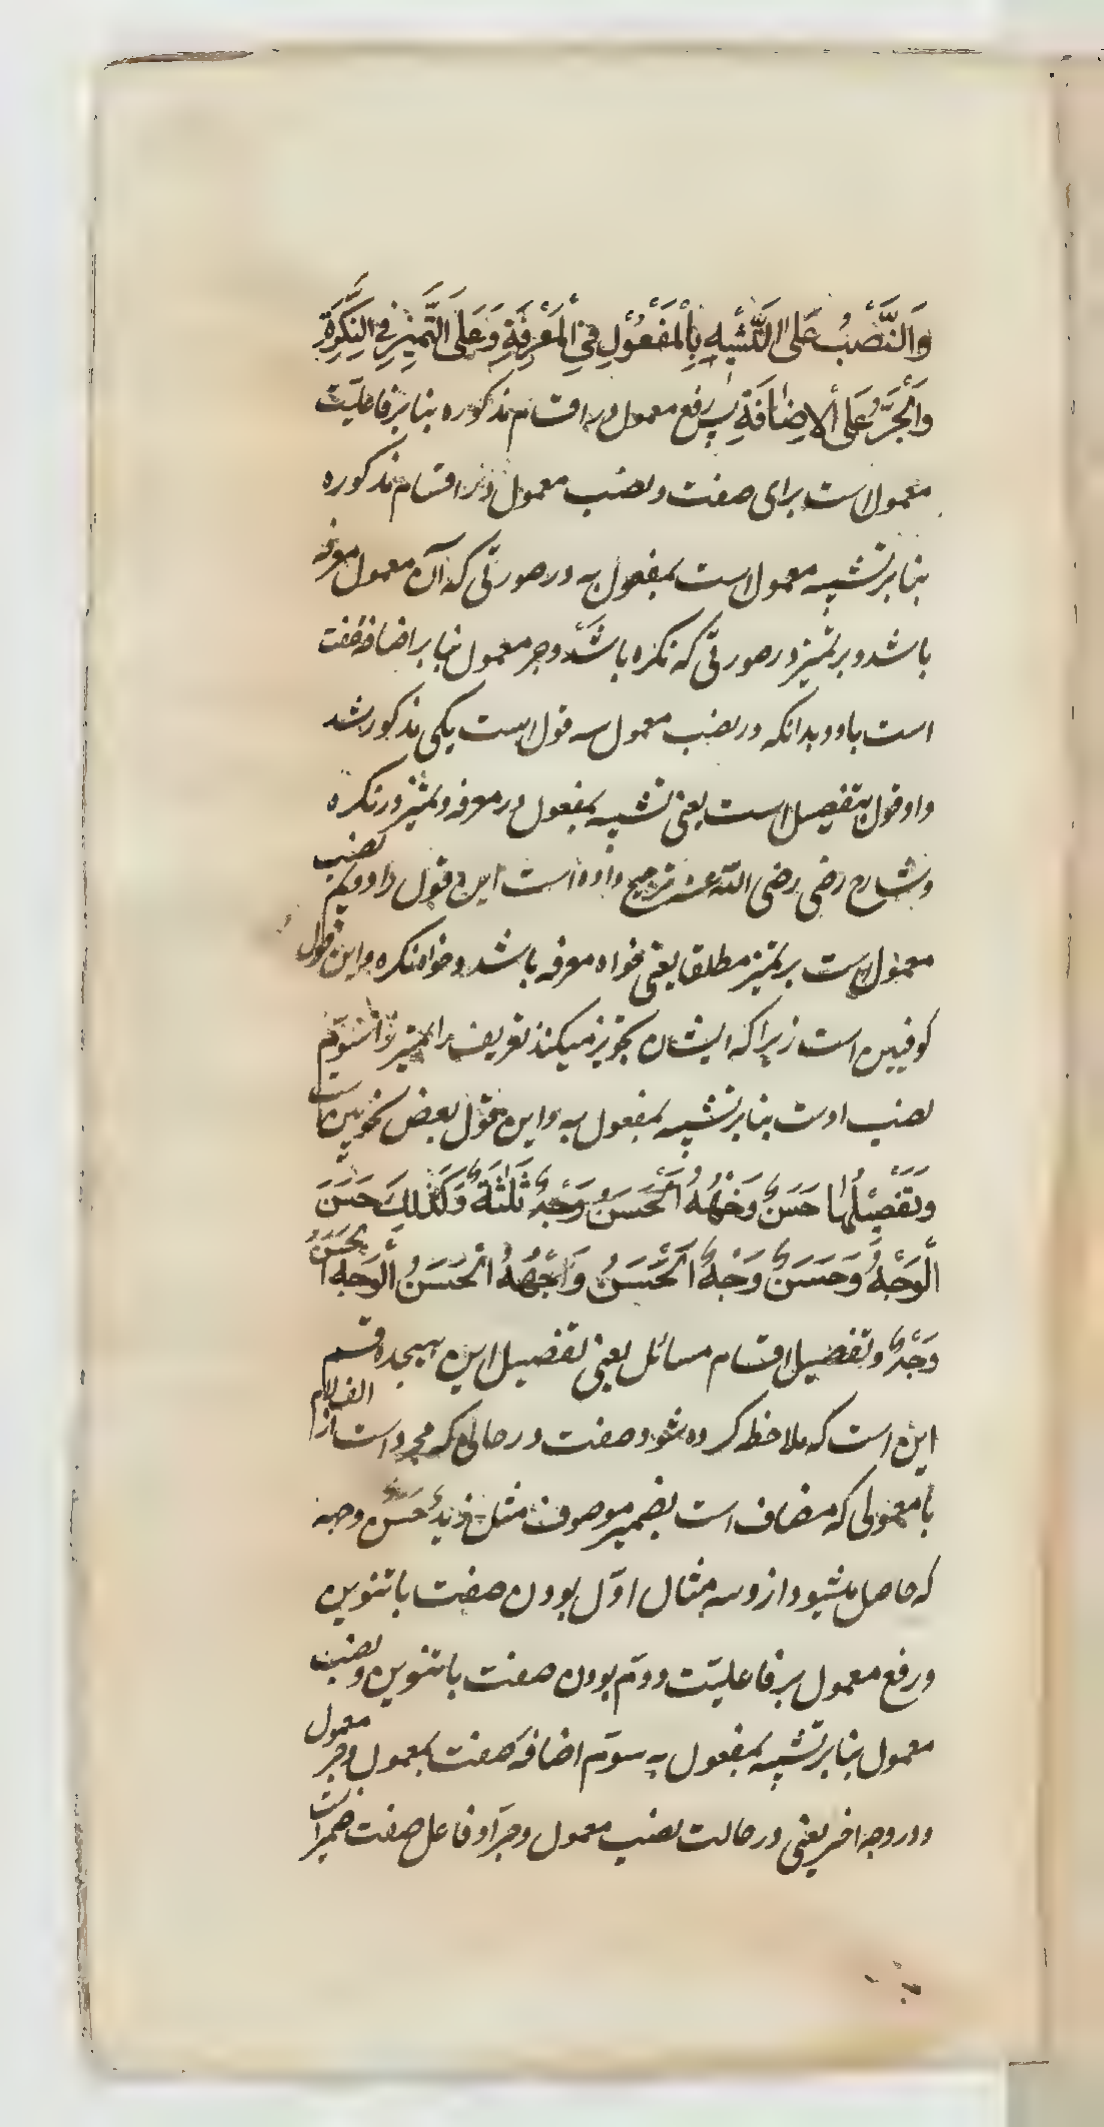 وَالنَّصْبُ عَلَى التَّشْبِیهِ بِالْمَفْعُوْلِ فِي الْمَعْرِفَةِ وَعَلَى التَّمِیْزِ فِی النَّکِرَةِ
وَالْجَرُّ عَلَى الْاِضَافَةِ پس رفع معمول در اقسام مذکوره بنا بر فاعلیّت
معمول است برای صفت و نصب معمول در اقسام مذکوره
بنا بر تشبیه معمول است بمفعول به در صورتی که آن معمول معرفه
باشد و بر تمیز در صورتی که نکره باشد و جر معمول بنا بر اضافه صفت
است باو و بدانکه در نصب معمول سه قول است یکی مذکور شد
و او قول بتفصیل است یعنی تشبیه بمفعول در معرفه و تمیز در نکره
و شارح رضی رضی الله عنه ترجیح داده است این قول را دویم نصب
معمول است بر تمیز مطلقا یعنی خواه معرفه باشد و خواه نکره و این قول
کوفیین است زیرا که ایشان تجویز میکنند تعریف را تمیز را سیّوم
نصب اوست بنا بر تشبیه بمفعول به و این قول بعض نحویین است
وَتَفْصِیْلُهَا حَسَنٌ وَجْهُهُ اَلْحَسَنُ وَجْهٌ ثَلٰثَةٌ وَکَذٰلِكَ حَسَنُ
الْوَجْهُ وَحَسَنٌ وَجْهٌ اَلْحَسَنُ وَجْهُهُ اَلْحَسَنُ الْوَجْهُ اَلْحَسَنُ
وَجْهٌ و تفصیل اقسام مسائل یعنی تفصیل این هیجده قسم
این است که ملاحظه کرده شود صفت در حالی که مجرد است از الف لام
با معمولی که مضاف است بضمیر موصوف مثل زیدٌ حَسَنٌ وجهه
که حاصل میشود ازو سه مثال اوّل بودن صفت با تنوین
و رفع معمول بر فاعلیّت دوّم بودن صفت با تنوین و نصب
معمول بنا بر تشبیه بمفعول به سوّم اضافه صفت بمعمول و جر معمول
و در وجه اخیر یعنی در حالت نصب معمول و جر او فاعل صفت ضمیر است